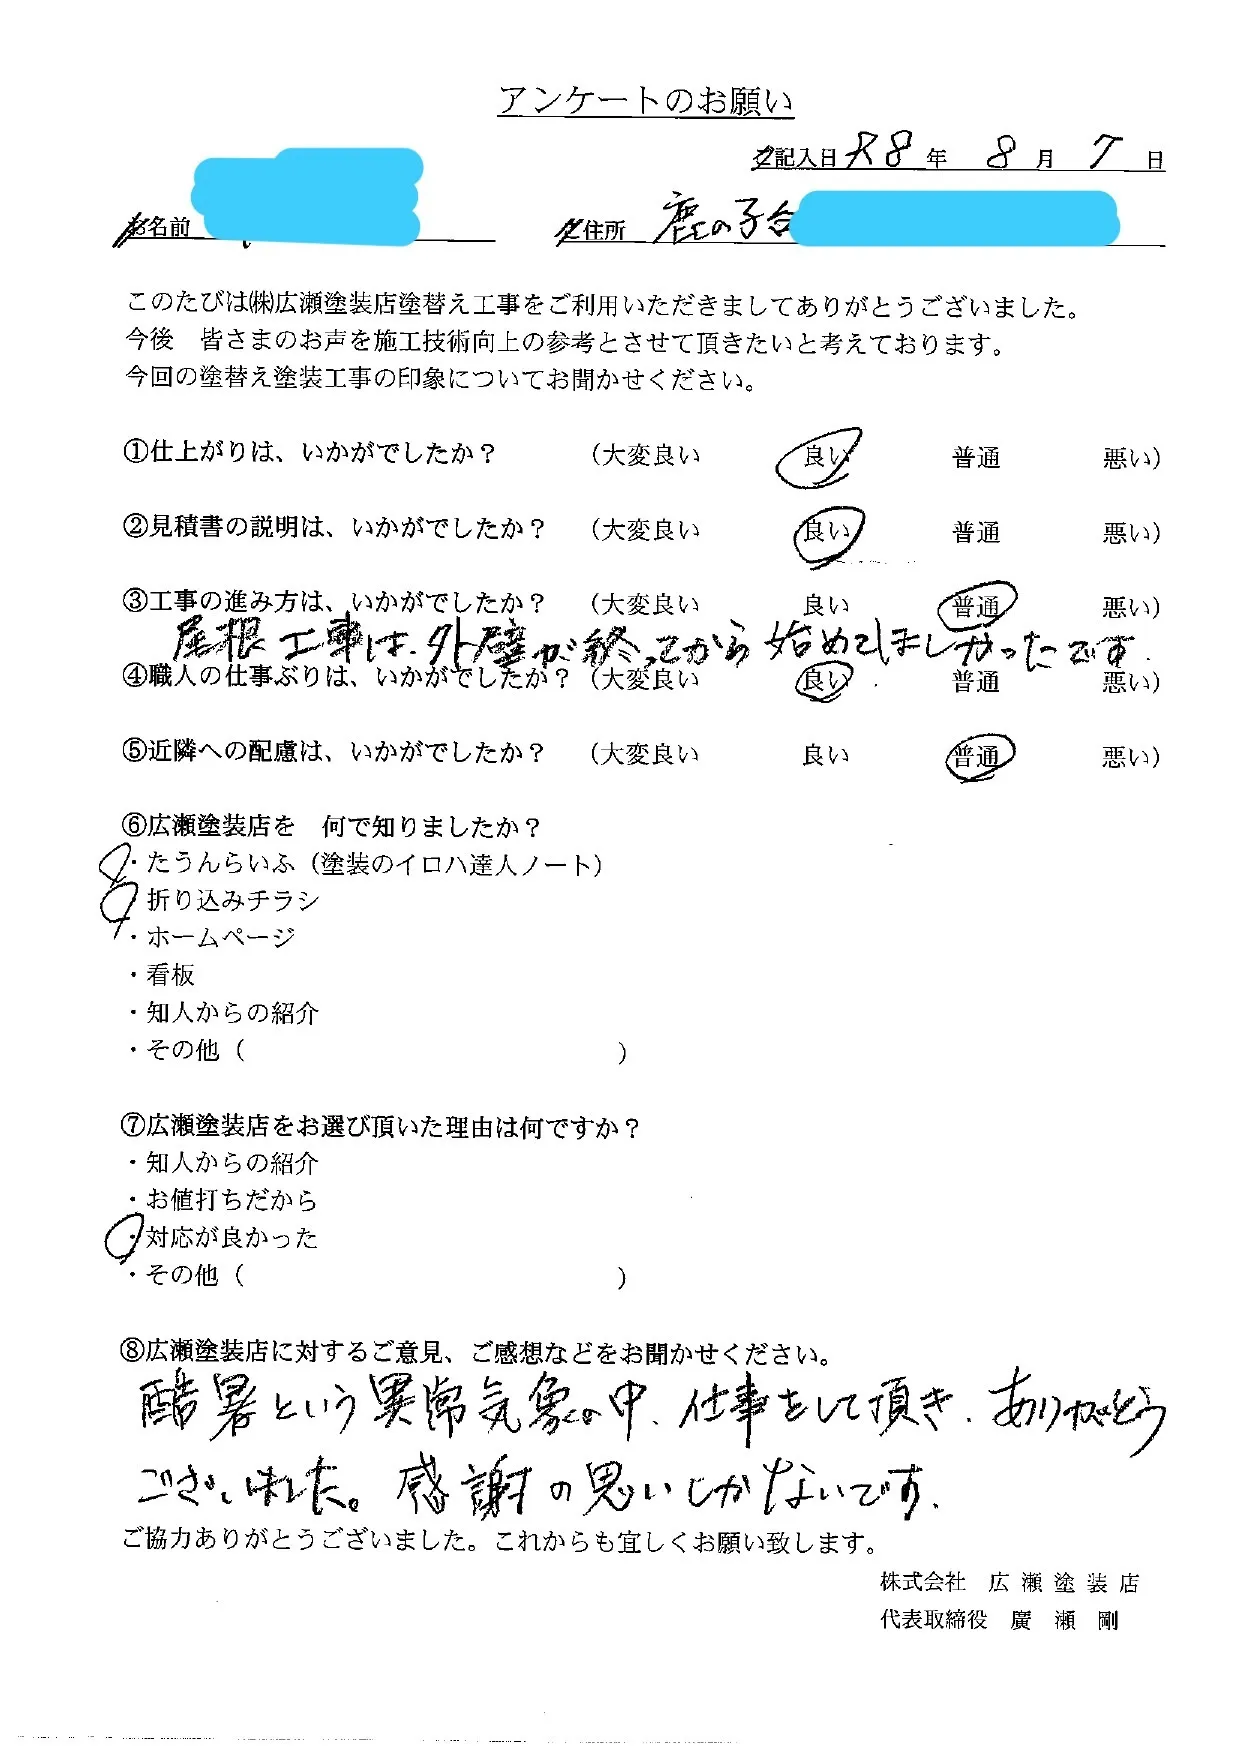 アンケートのお願い
ご記入日 R8 年 8 月 7 日
お名前 ご住所 鹿の子台
このたびは㈱広瀬塗装店塗替え工事をご利用いただきましてありがとうございました。
今後 皆さまのお声を施工技術向上の参考とさせて頂きたいと考えております。
今回の塗替え塗装工事の印象についてお聞かせください。
①仕上がりは、いかがでしたか? (大変良い 良い 普通 悪い)
②見積書の説明は、いかがでしたか? (大変良い 良い 普通 悪い)
③工事の進み方は、いかがでしたか? (大変良い 良い 普通 悪い)
尾根工事は、外壁が終ってから始めてほしかったです.
④職人の仕事ぶりは、いかがでしたか? (大変良い 良い 普通 悪い)
⑤近隣への配慮は、いかがでしたか? (大変良い 良い 普通 悪い)
⑥広瀬塗装店を 何で知りましたか?
・たうんらいふ(塗装のイロハ達人ノート)
・折り込みチラシ
・ホームページ
・看板
・知人からの紹介
・その他( )
⑦広瀬塗装店をお選び頂いた理由は何ですか?
・知人からの紹介
・お値打ちだから
・対応が良かった
・その他( )
⑧広瀬塗装店に対するご意見、ご感想などをお聞かせください。
酷暑という異常気象の中、仕事をして頂き、ありがとう
ございました。感謝の思いしかないです.
ご協力ありがとうございました。これからも宜しくお願い致します。
株式会社 広瀬塗装店
代表取締役 廣瀬 剛